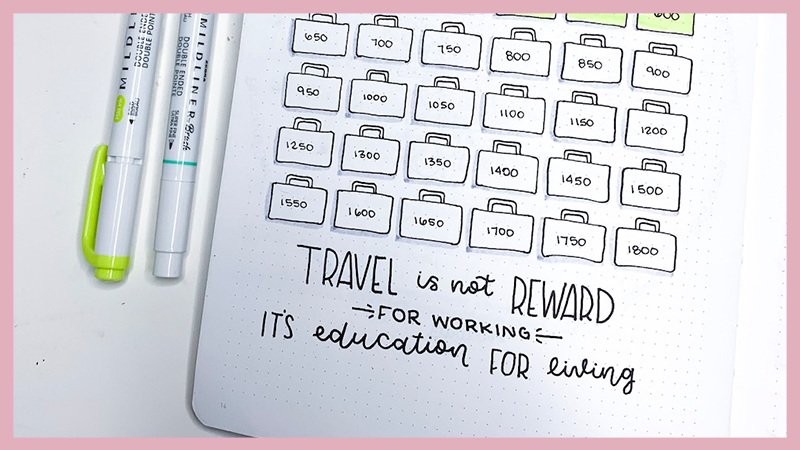 600
650 700 750 800 850 900
950 1000 1050 1100 1150 1200
1250 1300 1350 1400 1450 1500
1550 1600 1650 1700 1750 1800
TRAVEL is not REWARD
FOR WORKING
IT'S education FOR living
MILDL
DOUBLE ENDED
DOUBLE POINT
MILDLINER Brush
DOUBLE ENDED
DOUBLE POINTES